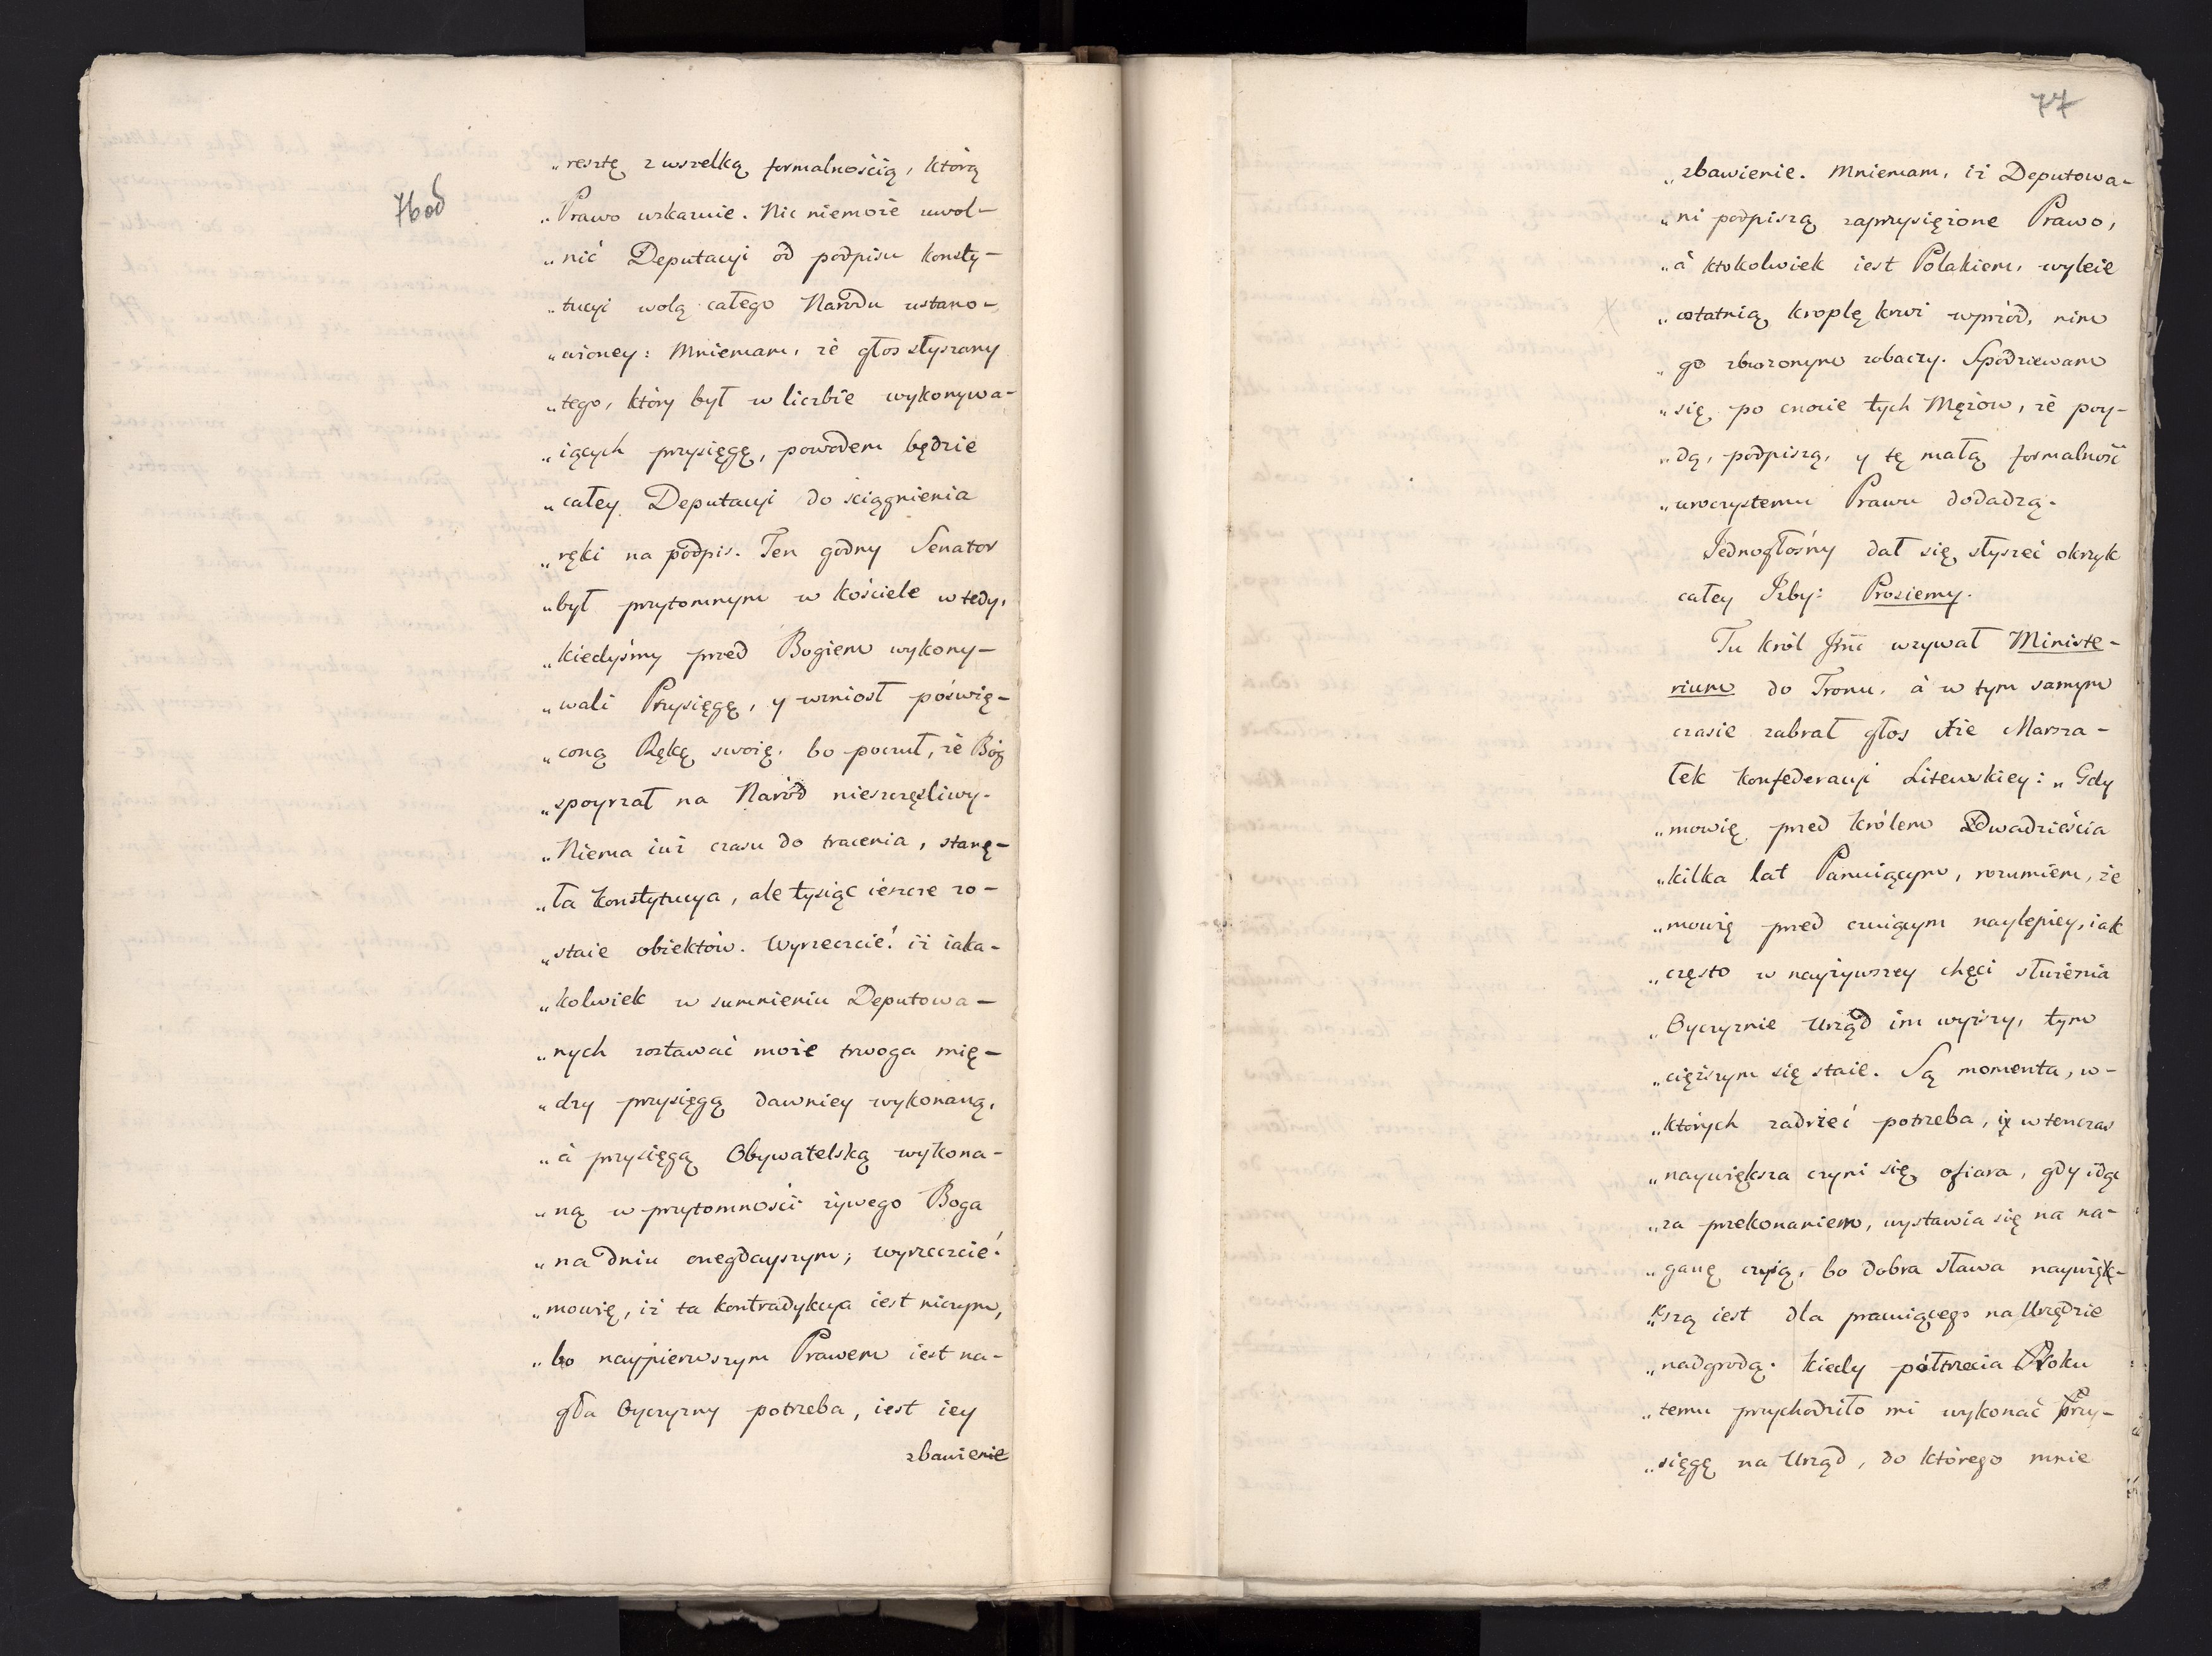 76 od
„resztę z wszelką formalnością, którą
„Prawo wskazuie. Nic niemoże uwol-
„nić Deputacyi od podpisu konsty-
„tucyi wolą całego Narodu ustano-
„wioney: Mniemam, że głos słyszany
„tego, który był w liczbie wykonywa-
„iących przysięgę, powodem będzie
„całey Deputacyi do ściągnienia
„ręki na podpis. Ten godny Senator
„był przytomnym w Kościele wtedy,
„kiedyśmy przed Bogiem wykony-
„wali Przysięgę, y wzniosł poświę-
„coną Rękę swoię, bo poczuł, że Bóg
„spoyrzał na Naród nieszczęśliwy.
„Niema iuż czasu do tracenia, stanę-
„ła Konstytucya, ale tysiąc ieszcze zo-
„staie obiektów. Wyrzeczcie! iż iaka-
„kolwiek w sumnieniu Deputowa-
„nych zostawać może trwoga mię-
„dzy przysięgą dawniey wykonaną,
„à przysięgą Obywatelską wykona-
„ną w przytomności żywego Boga
„na dniu onegdayszym; wyrzeczcie!
„mowię, iż ta kontradykcya iest niczym,
„bo naypierwszym Prawem iest na-
gła Oyczyzny potrzeba, iest iey
zbawienie
77
„zbawienie. Mniemam, iż Deputowa-
„ni podpiszą zaprzysiężone Prawo,
„à ktokolwiek iest Polakiem, wyleie
„ostatnią kroplę krwi wprzód, nim
„go zburzonym zobaczy. Spodziewam
„się po cnocie tych Mężow, że pòy-
„dą, podpiszą, y tę małą formalność
„uroczystemu Prawu dodadzą.
Jednogłośny dał się słyszeć okrzyk
całey Izby: Prosiemy.
Tu Król Jmć wzywał Ministe-
rium do Tronu, à w tym samym
czasie zabrał głos Xże Marsza-
łek Konfederacyi Litewskiey: „Gdy
„mowię przed Królem Dwadzieścia
„kilka lat Panuiącym, rozumiem, że
„mowię przed czuiącym naylepiey, iak
„często w nayżywszey chęci służenia
„Oyczyznie Urząd im wyższy, tym
„cięższym się staie. Są momenta, w-
„których zadrżeć potrzeba, iż wtenczas
„naywiększa czyni się ofiara, gdy idąc
„za przekonaniem, wystawia się na na-
„ganę czyią, bo dobra sława naywięk-
„szą iest dla pracuiącego na Urzędzie
„nadgrodą. Kiedy półtrzecia Roku
„temu przychodziło mi wykonać Przy-
„sięgę na Urząd, do którego mnie